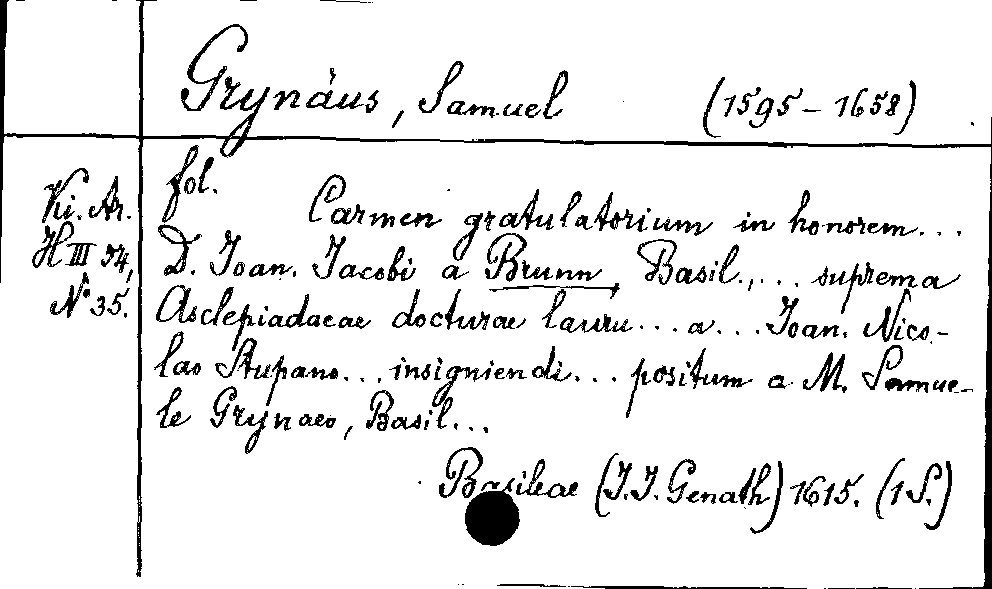 Grynäus, Samuel (1595-1658)
fol.
Ki. Ar.
H III 34,
No 35.
Carmen gratulatorium in honorem...
D. Ioan. Jacobi a Brunn, Basil.,... suprema
Asclepiadaeae docturae lauru... a... Ioan. Nico-
lao Stupano... insigniendi... positum a M. Samue-
le Grynaeo, Basil...
Basileae (J.J. Genath) 1615. (1 S.)